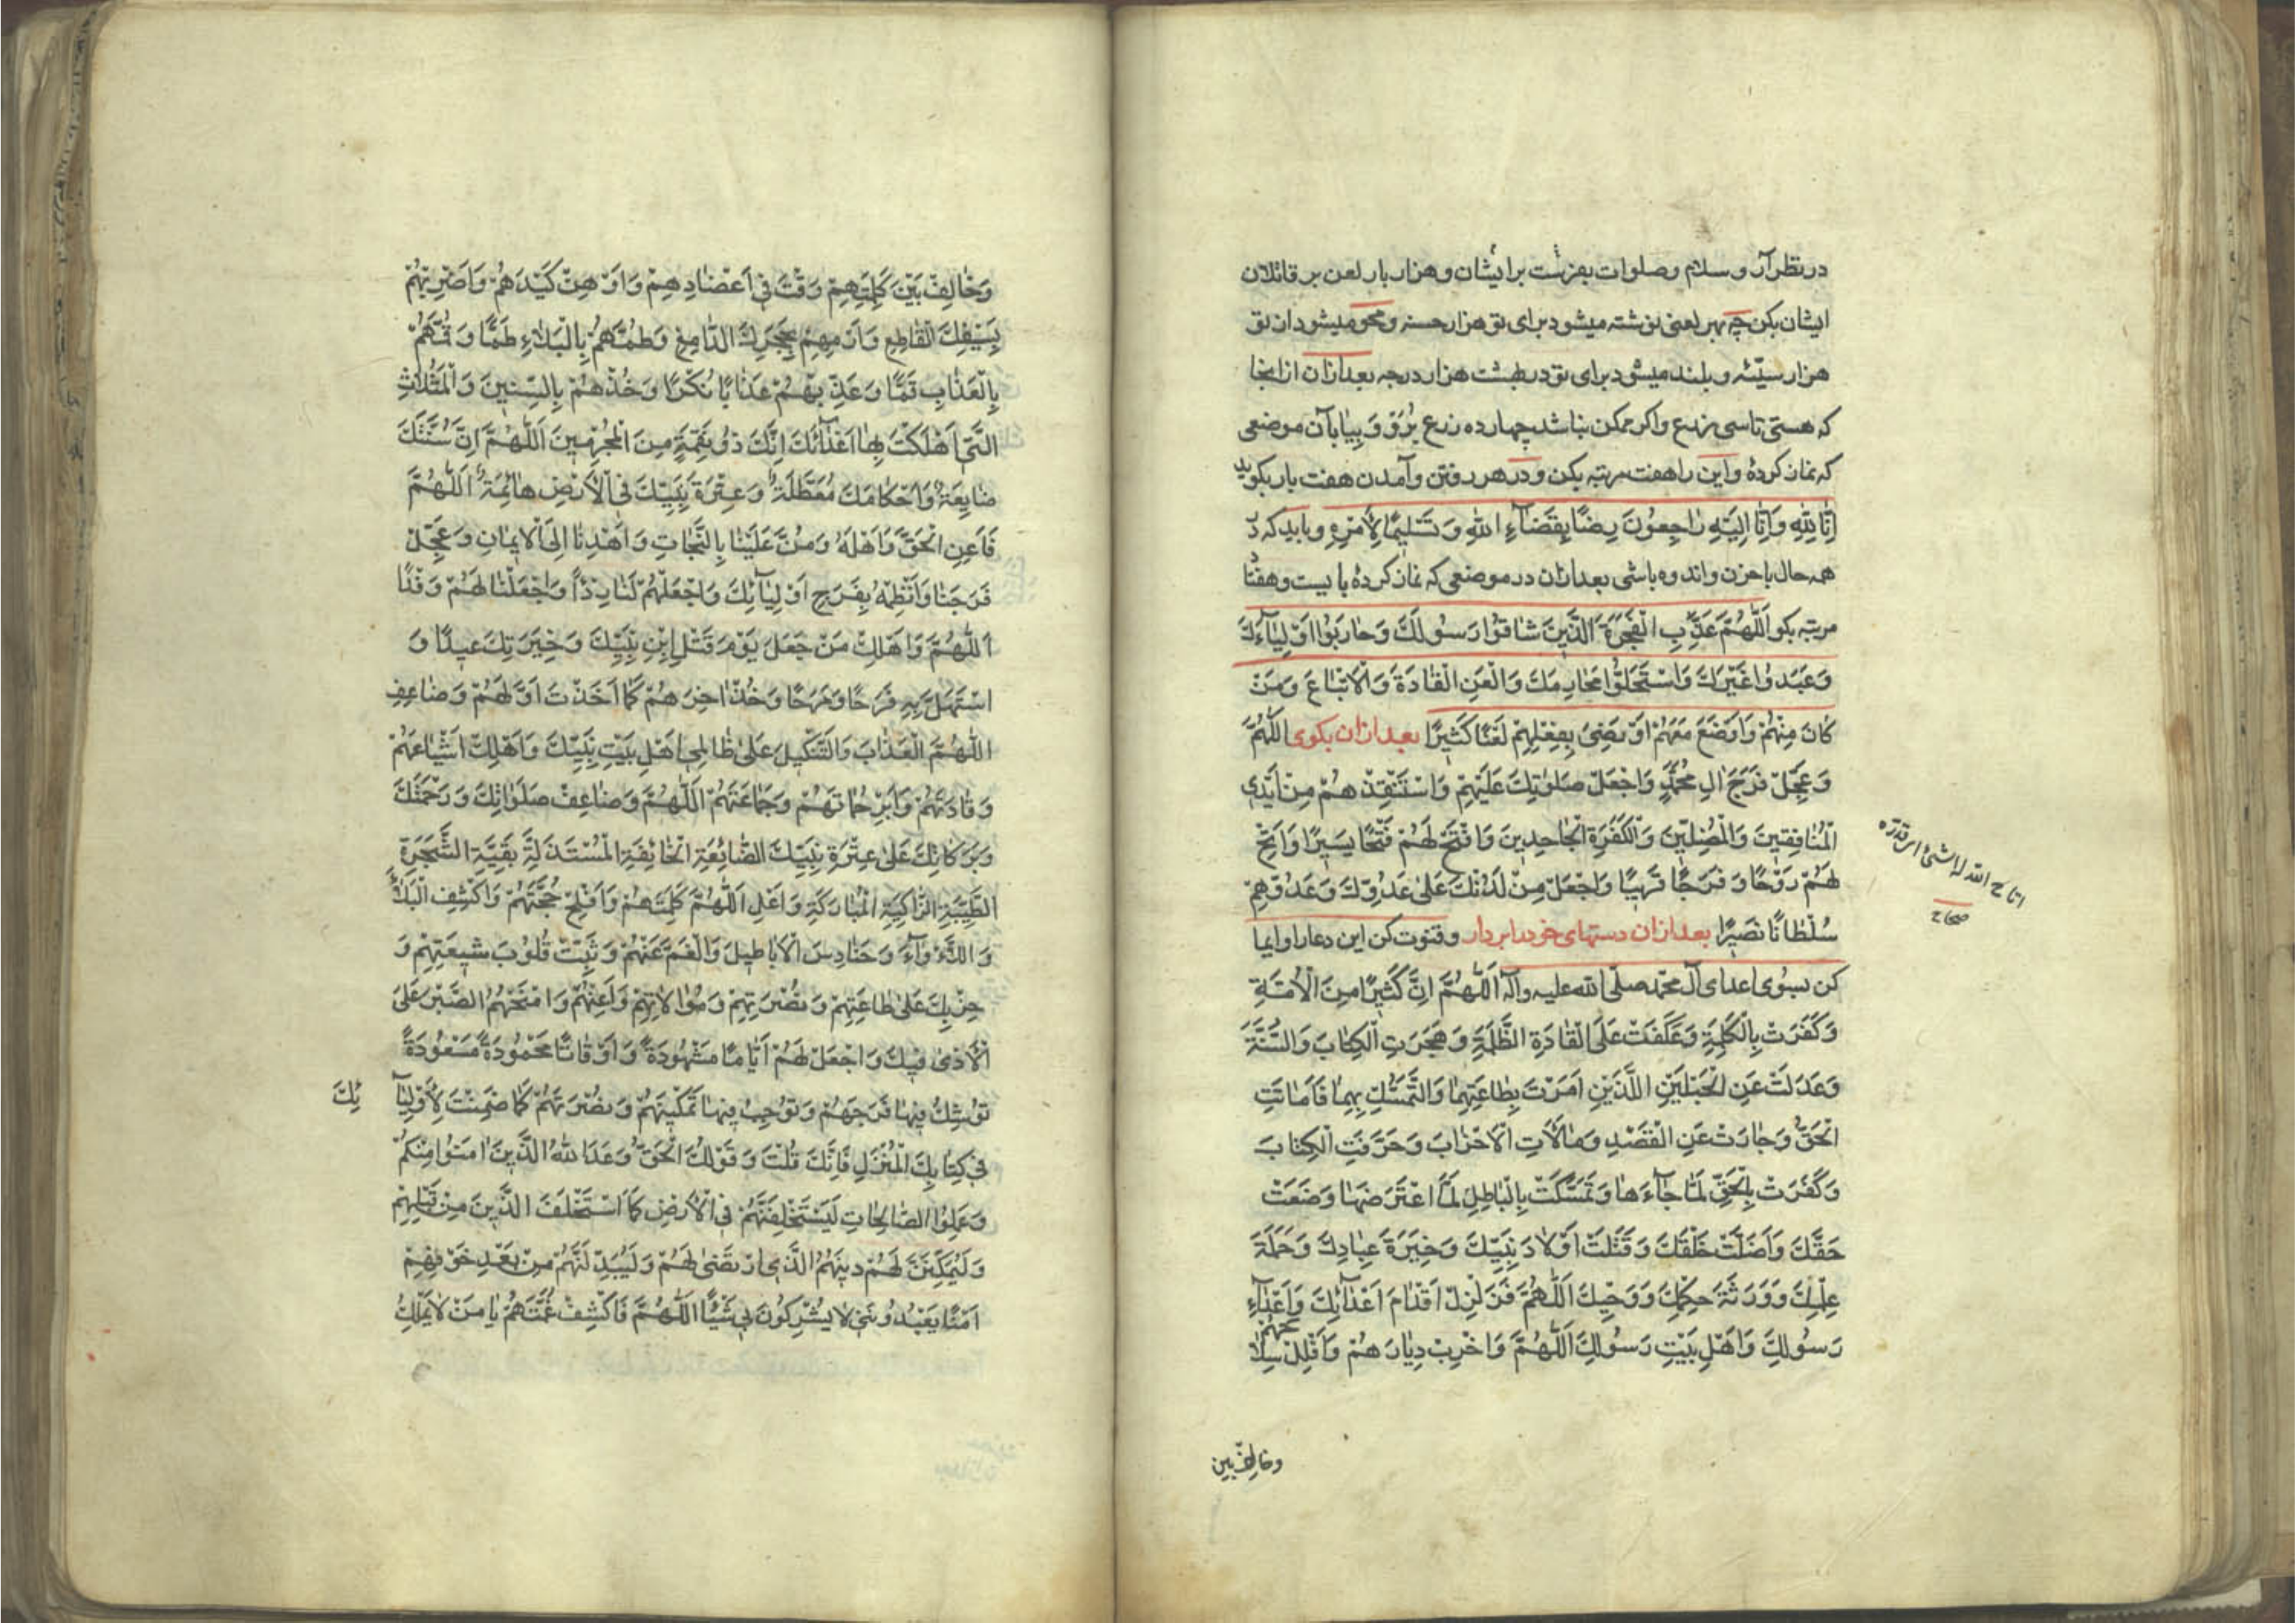 در نظر آر و سلام و صلوات بفرست بر ایشان و هزار بار لعن بر قاتلان
ایشان بکن چه بهر لعنی نوشته میشود برای تو هزار حسنه و محو میشود از تو
هزار سیّئه و بلند میشود برای تو در بهشت هزار درجه بعد ازان از انجا
که هستی تا سی ذرع و اکر ممکن نباشد چهارده ذرع برو و بیا بآن موضعی
که نماز کردهٔ و این را هفت مرتبه بکن و در هر رفتن و آمدن هفت بار بکوید
اِنّا لِلّهِ وَاِنّا اِلَیْهِ رٰاجِعُونَ رِضًا بِقَضٰآءِ اللهِ وَ تَسْلیمًا لِاَمْرِهِ و باید که در
همه حال با حزن و اندوه باشی بعد ازان در موضعی که نماز کردهٔ با بیست و هفتا
مرتبه بکو اَللّهُمَّ عَذِّبِ الْفَجَرَةَ الَّذینَ شٰاقُّوا رَسُولَكَ وَحٰارَبُوا اَوْلِیٰآءَكَ
وَعَبَدُوا غَیْرَكَ وَاسْتَحَلُّوا مَحٰارِمَكَ وَالْعَنِ الْقٰادَةَ وَالْاَتْبٰاعَ وَمَنْ
كٰانَ مِنْهُمْ وَاَوْضَعَ مَعَهُمْ اَوْ رَضِیَ بِفِعْلِهِمْ لَعْنًا كَثیرًا بعد ازان بکوی اَللّهُمَّ
وَعَجِّلْ فَرَجَ اٰلِ مُحَمَّدٍ وَاجْعَلْ صَلَوٰتِكَ عَلَیْهِمْ وَاسْتَنْقِذْهُمْ مِنْ اَیْدِی
الْمُنٰافِقینَ وَالْمُضِلّینَ وَالْكَفَرَةِ الْجٰاحِدینَ وَافْتَحْ لَهُمْ فَتْحًا یَسیرًا وَاَتِحْ
لَهُمْ رَوْحًا وَفَرَجًا قَریبًا وَاجْعَلْ مِنْ لَدُنْكَ عَلیٰ عَدُوِّكَ وَعَدُوِّهِمْ
سُلْطٰانًا نَصیرًا بعد ازان دستهای خود را بردار و قنوت کن این دعا را و ایما
کن بسوی اعدای آل محمّد صلّی الله علیه وآله اَللّهُمَّ اِنَّ كَثیرًا مِنَ الْاُمَّةِ
وَكَفَرَتْ بِالْكَلِمَةِ وَعَكَفَتْ عَلَی الْقٰادَةِ الظَّلَمَةِ وَهَجَرَتِ الْكِتٰابَ وَالسُّنَّةَ
وَعَدَلَتْ عَنِ الْحَبْلَیْنِ اللَّذَیْنِ اَمَرْتَ بِطٰاعَتِهِمٰا وَالتَّمَسُّكِ بِهِمٰا فَاَمٰاتَتِ
الْحَقَّ وَجٰارَتْ عَنِ الْقَصْدِ وَمٰالَأَتِ الْاَحْزٰابَ وَحَرَّفَتِ الْكِتٰابَ
وَكَفَرَتْ بِالْحَقِّ لَمّٰا جٰآءَهٰا وَتَمَسَّكَتْ بِالْبٰاطِلِ لَمَّا اعْتَرَضَهٰا وَضَیَّعَتْ
حَقَّكَ وَاَضَلَّتْ خَلْقَكَ وَقَتَلَتْ اَوْلٰادَ نَبِیِّكَ وَخِیَرَةَ عِبٰادِكَ وَحَمَلَةَ
عِلْمِكَ وَوَرَثَةَ حِكْمَتِكَ وَوَحْیِكَ اَللّهُمَّ فَزَلْزِلْ اَقْدٰامَ اَعْدٰآئِكَ وَاَعْدٰآءِ
رَسُولِكَ وَاَهْلِ بَیْتِ رَسُولِكَ اَللّهُمَّ وَاَخْرِبْ دِیٰارَهُمْ وَافْلُلْ سِلٰاحَهُمْ
اتاح الله له الشئ ای قدّره
صحاح
وخالف بین
وَخٰالِفْ بَیْنَ كَلِمَتِهِمْ وَفُتَّ فی اَعْضٰادِهِمْ وَاَوْهِنْ كَیْدَهُمْ وَاضْرِبْهُمْ
بِسَیْفِكَ الْقٰاطِعِ وَارْمِهِمْ بِحَجَرِكَ الدّٰامِغِ وَطُمَّهُمْ بِالْبَلٰاءِ طَمًّا وَقُمَّهُمْ
بِالْعَذٰابِ قَمًّا وَعَذِّبْهُمْ عَذٰابًا نُكْرًا وَخُذْهُمْ بِالسِّنینَ وَالْمَثُلٰاتِ
الَّتی اَهْلَكْتَ بِهٰا اَعْدٰآئَكَ اِنَّكَ ذُو نِقْمَةٍ مِنَ الْمُجْرِمینَ اَللّهُمَّ اِنَّ سُنَّتَكَ
ضٰایِعَةٌ وَاَحْكٰامَكَ مُعَطَّلَةٌ وَعِتْرَةَ نَبِیِّكَ فِی الْاَرْضِ هٰائِمَةٌ اَللّهُمَّ
فَاَعِنِ الْحَقَّ وَاَهْلَهُ وَمُنَّ عَلَیْنٰا بِالنَّجٰاتِ وَاهْدِنٰا اِلَی الْایمٰانِ وَعَجِّلْ
فَرَجَنٰا وَانْظِمْهُ بِفَرَجِ اَوْلِیٰآئِكَ وَاجْعَلْهُمْ لَنٰا رِدْءًا وَاجْعَلْنٰا لَهُمْ وَفْدًا
اَللّهُمَّ وَاَهْلِكْ مَنْ جَعَلَ یَوْمَ قَتْلِ ابْنِ نَبِیِّكَ وَخِیَرَتِكَ عیدًا وَ
اسْتَهَلَّ بِهِ فَرَحًا وَمَرَحًا وَخُذْ اٰخِرَهُمْ كَمٰا اَخَذْتَ اَوَّلَهُمْ وَضٰاعِفِ
اللّٰهُمَّ الْعَذٰابَ وَالتَّنْكیلَ عَلیٰ ظٰالِمی اَهْلِ بَیْتِ نَبِیِّكَ وَاَهْلِكْ اَشْیٰاعَهُمْ
وَقٰادَتَهُمْ وَاَبِرْ حُمٰاتَهُمْ وَجَمٰاعَتَهُمْ اَللّهُمَّ وَضٰاعِفْ صَلَوٰاتِكَ وَرَحْمَتَكَ
وَبَرَكٰاتِكَ عَلیٰ عِتْرَةِ نَبِیِّكَ الضّٰائِعَةِ الْخٰائِفَةِ الْمُسْتَذَلَّةِ بَقِیَّةِ الشَّجَرَةِ
الطَّیِّبَةِ الزّٰاكِیَةِ الْمُبٰارَكَةِ وَاَعْلِ اَللّهُمَّ كَلِمَتَهُمْ وَاَفْلِحْ حُجَّتَهُمْ وَاكْشِفِ الْبَلٰآءَ
وَاللَّأْوٰآءَ وَحَنٰادِسَ الْاَبٰاطیلِ وَالْغَمَّ عَنْهُمْ وَثَبِّتْ قُلُوبَ شیعَتِهِمْ وَ
حِزْبِكَ عَلیٰ طٰاعَتِهِمْ وَنُصْرَتِهِمْ وَمُوٰالٰاتِهِمْ وَاَعِنْهُمْ وَامْنَحْهُمُ الصَّبْرَ عَلَی
الْاَذیٰ فیكَ وَاجْعَلْ لَهُمْ اَیّٰامًا مَشْهُودَةً وَاَوْقٰاتًا مَحْمُودَةً مَسْعُودَةً
تُوشِكُ فیهٰا فَرَجَهُمْ وَتُوجِبُ فیهٰا تَمْكینَهُمْ وَنُصْرَتَهُمْ كَمٰا ضَمِنْتَ لِاَوْلِیٰآئِكَ
فی كِتٰابِكَ الْمُنْزَلِ فَاِنَّكَ قُلْتَ وَقَوْلُكَ الْحَقُّ وَعَدَ اللهُ الَّذینَ اٰمَنُوا مِنْكُمْ
وَعَمِلُوا الصّٰالِحٰاتِ لَیَسْتَخْلِفَنَّهُمْ فِی الْاَرْضِ كَمَا اسْتَخْلَفَ الَّذینَ مِنْ قَبْلِهِمْ
وَلَیُمَكِّنَنَّ لَهُمْ دینَهُمُ الَّذِی ارْتَضیٰ لَهُمْ وَلَیُبَدِّلَنَّهُمْ مِنْ بَعْدِ خَوْفِهِمْ
اَمْنًا یَعْبُدُونَنی لٰا یُشْرِكُونَ بی شَیْئًا اَللّهُمَّ فَاكْشِفْ غُمَّتَهُمْ یٰا مَنْ لٰا یَمْلِكُ